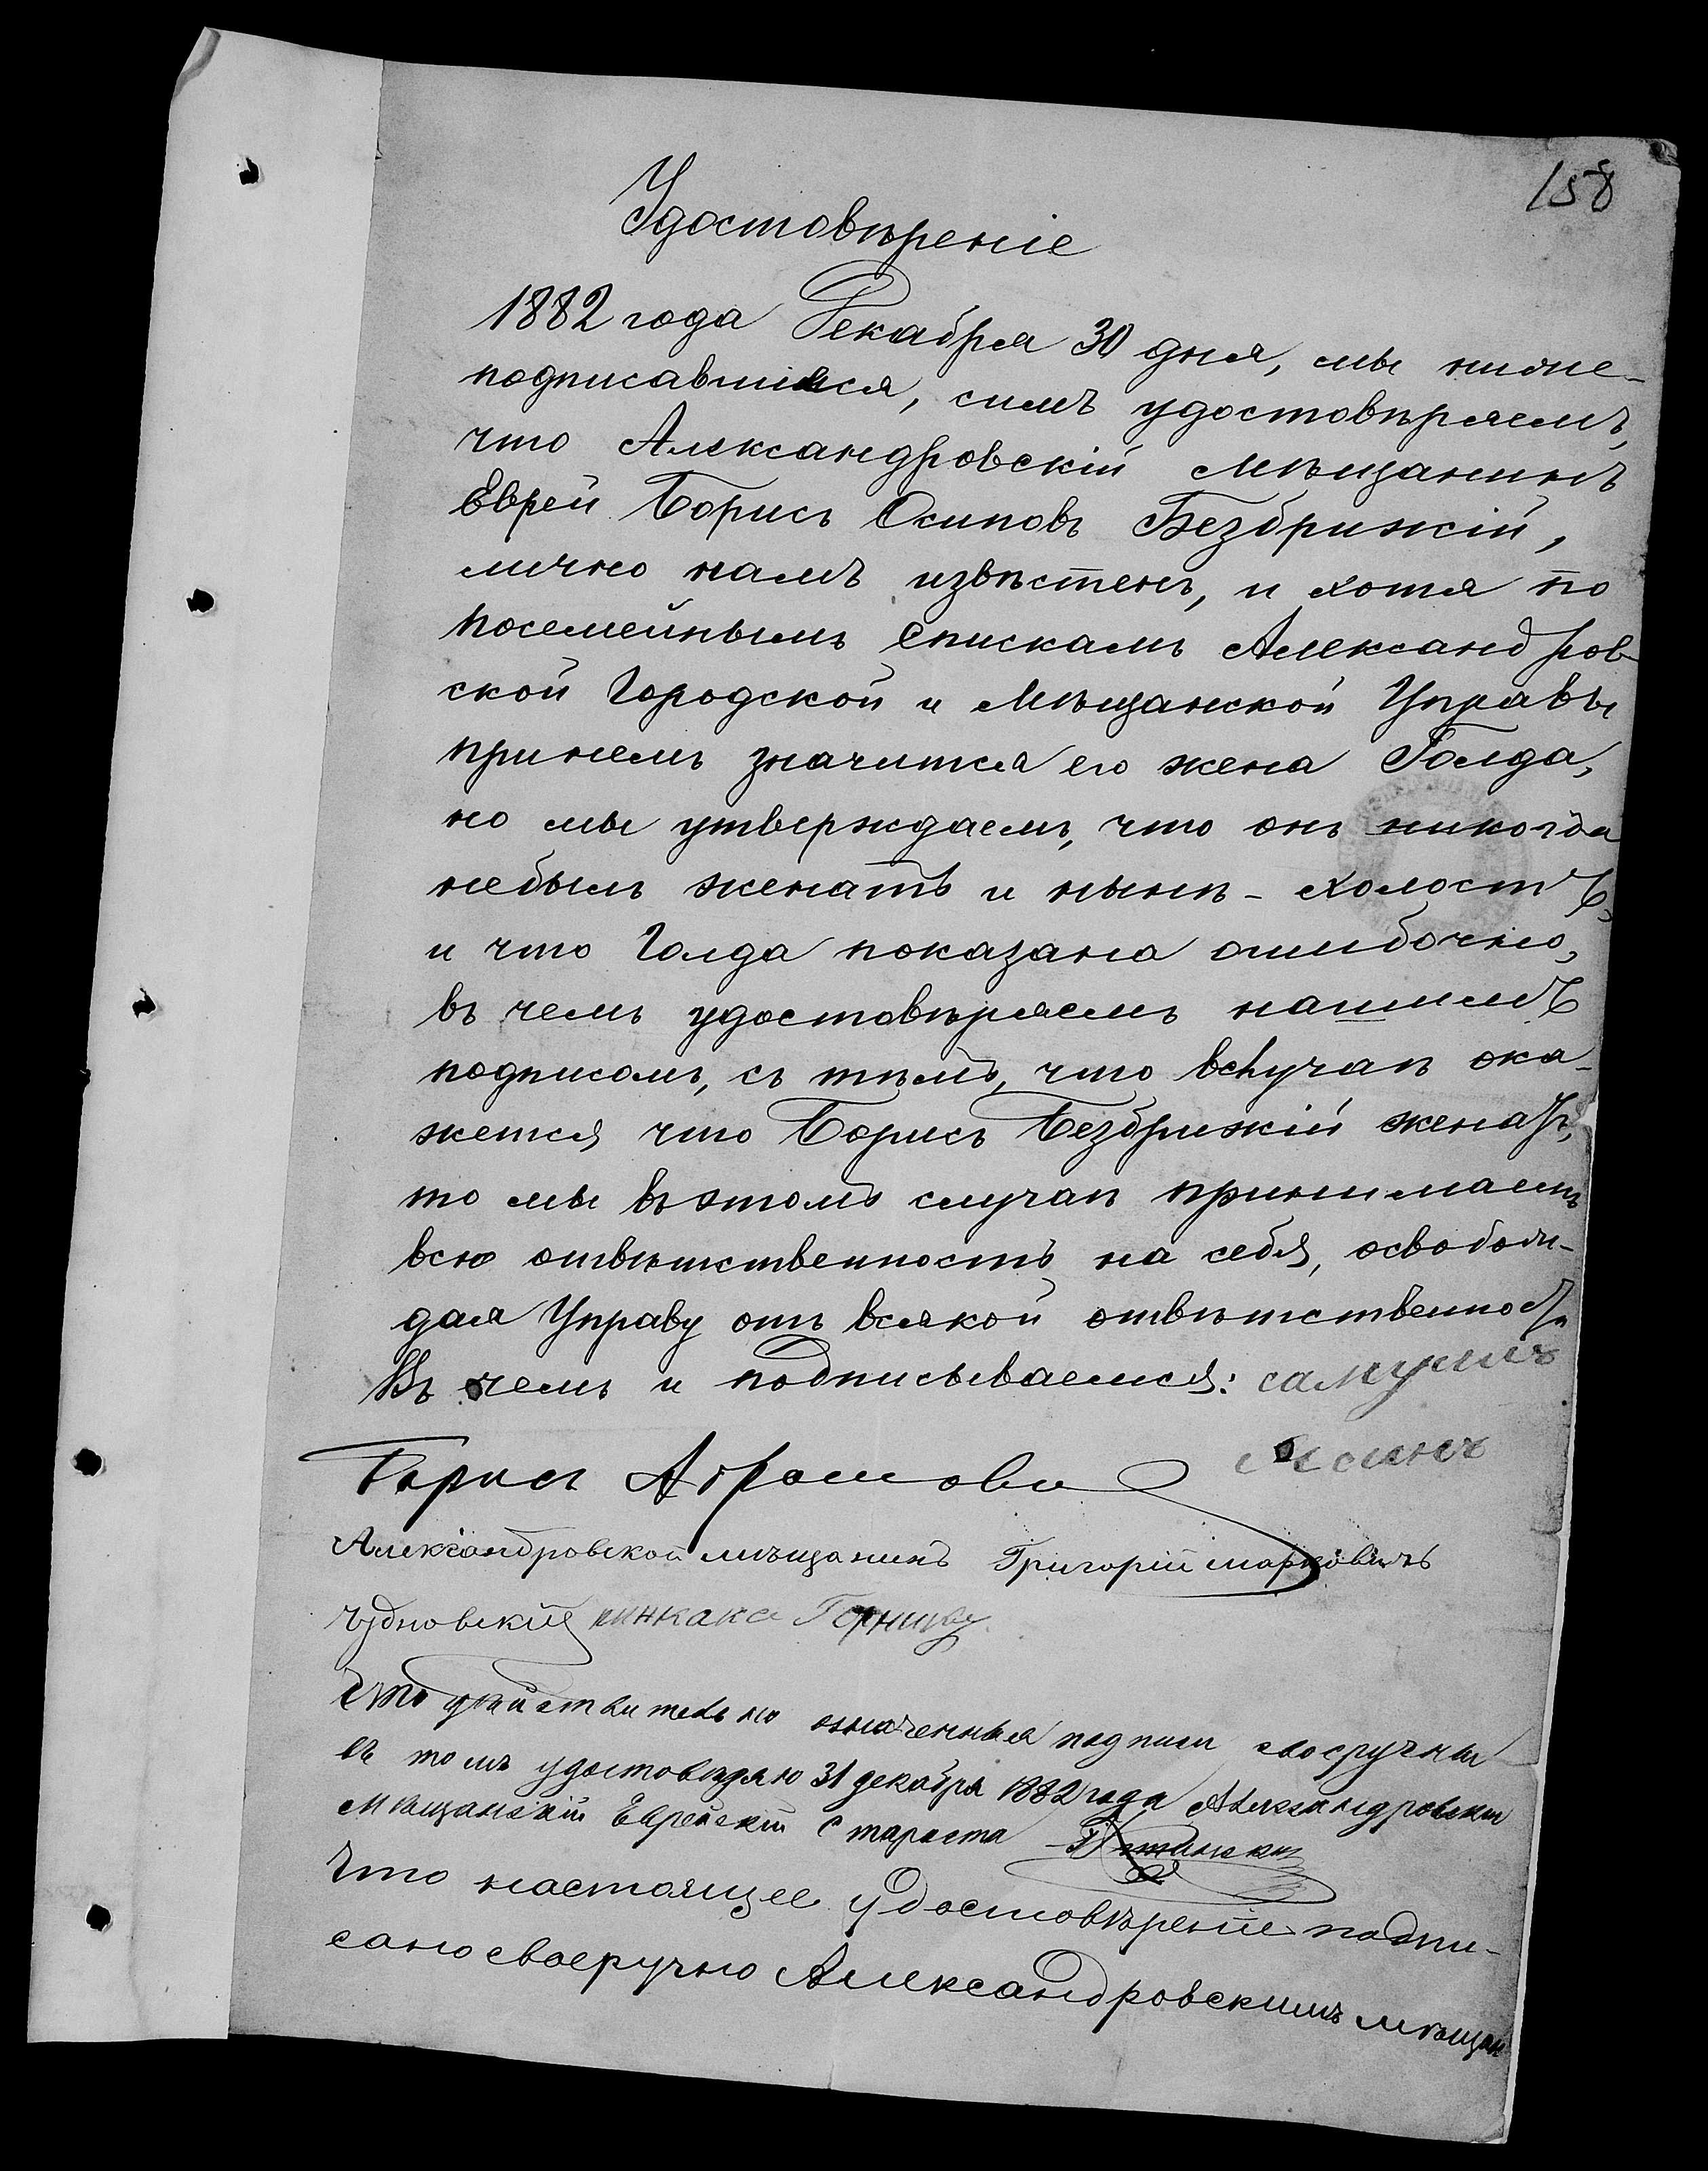 158
Удостовѣреніе
1882 года Декабря 30 дня, мы ниже-
подписавшіяся, симъ удостовѣряемъ,
что Александровскій Мѣщанинъ
Еврей Борисъ Осиповъ Безбрижій,
лично намъ извѣстенъ, и хотя по
посемейнымъ спискамъ Александров
ской Городской и Мѣщанской Управы
принемъ значится его жена Голда,
но мы утверждаемъ, что онъ никогда
небылъ женатъ и нынѣ - холостъ,
и что Голда показана ошибочно,
въ чемъ удостовѣряемъ нашимъ
подписомъ, съ тѣмъ, что вслучаѣ ока-
жется что Борисъ Безбрижій женатъ,
то мы въ этомъ случаѣ принимаемъ
всю отвѣтственность на себя, освобож-
дая Управу отъ всякой отвѣтственности
Въ чемъ и подписываемся:
Борисъ Абрамовъ
Александровской мѣщанинъ Григорій Марковичъ
Чудновскій
Что дѣйствительно означенныя подписи своеручны
въ томъ удостовѣряю 31 декабря 1882 года Александровскій
Мѣщанскій Еврейскій Староста
Что настоящее удостовѣреніе подпи-
сано своеручно Александровскимъ мѣщан